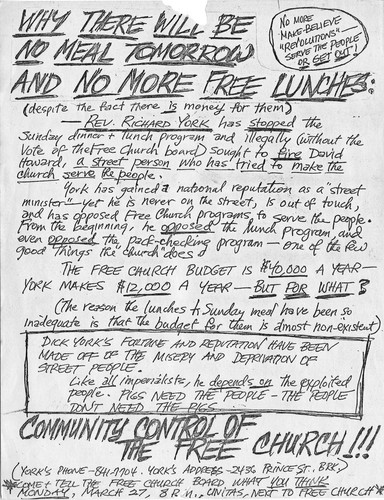 WHY THERE WILL BE
NO MEAL TOMORROW
AND NO MORE FREE LUNCHES:
NO MORE
MAKE-BELIEVE
"REVOLUTIONS"
SERVE THE PEOPLE
OR GET OUT!
(despite the fact there is money for them)
— REV. RICHARD YORK has stopped the
Sunday dinner + lunch program and illegally (without the
vote of the Free Church board) sought to fire David
Howard, a street person who has tried to make the
church serve the people.
York has gained a national reputation as a "street
minister" - yet he is never on the street, is out of touch,
and has opposed Free Church programs, to serve the people.
From the beginning, he opposed the lunch program, and
even opposed the pack-checking program — one of the few
good things the "church" does
THE FREE CHURCH BUDGET IS $40,000 A YEAR —
YORK MAKES $12,000 A YEAR — BUT FOR WHAT?
(The reason the lunches + Sunday meal have been so
inadequate is that the budget for them is almost non-existent)
DICK YORK'S FORTUNE AND REPUTATION HAVE BEEN
MADE OFF OF THE MISERY AND DEPRIVATION OF
STREET PEOPLE.
Like all imperialists, he depends on the exploited
people. PIGS NEED THE PEOPLE - THE PEOPLE
DON'T NEED THE PIGS
COMMUNITY CONTROL OF
THE FREE CHURCH!!!
(YORK'S PHONE - 841-9704. YORK'S ADDRESS - 2436 PRINCE ST., BRK.)
*COME + TELL THE FREE CHURCH BOARD WHAT YOU THINK
MONDAY, MARCH 27, 8 P.M., UNITAS, NEXT TO CHURCH*